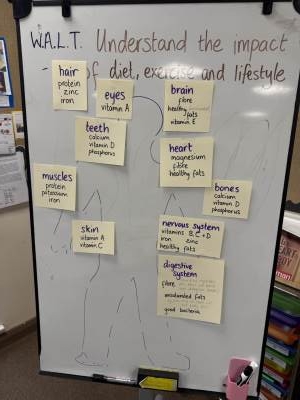 W.A.L.T. Understand the impact
of diet, exercise and lifestyle
hair
protein
zinc
iron
eyes
vitamin A
brain
fibre
healthy
fats
vitamin E
teeth
calcium
vitamin D
phosphorus
heart
magnesium
fibre
healthy fats
muscles
protein
potassium
iron
bones
calcium
vitamin D
phosphorus
skin
vitamin A
vitamin C
nervous system
vitamins B, C + D
iron zinc
healthy fats
digestive
system
fibre
unsaturated fats
good bacteria